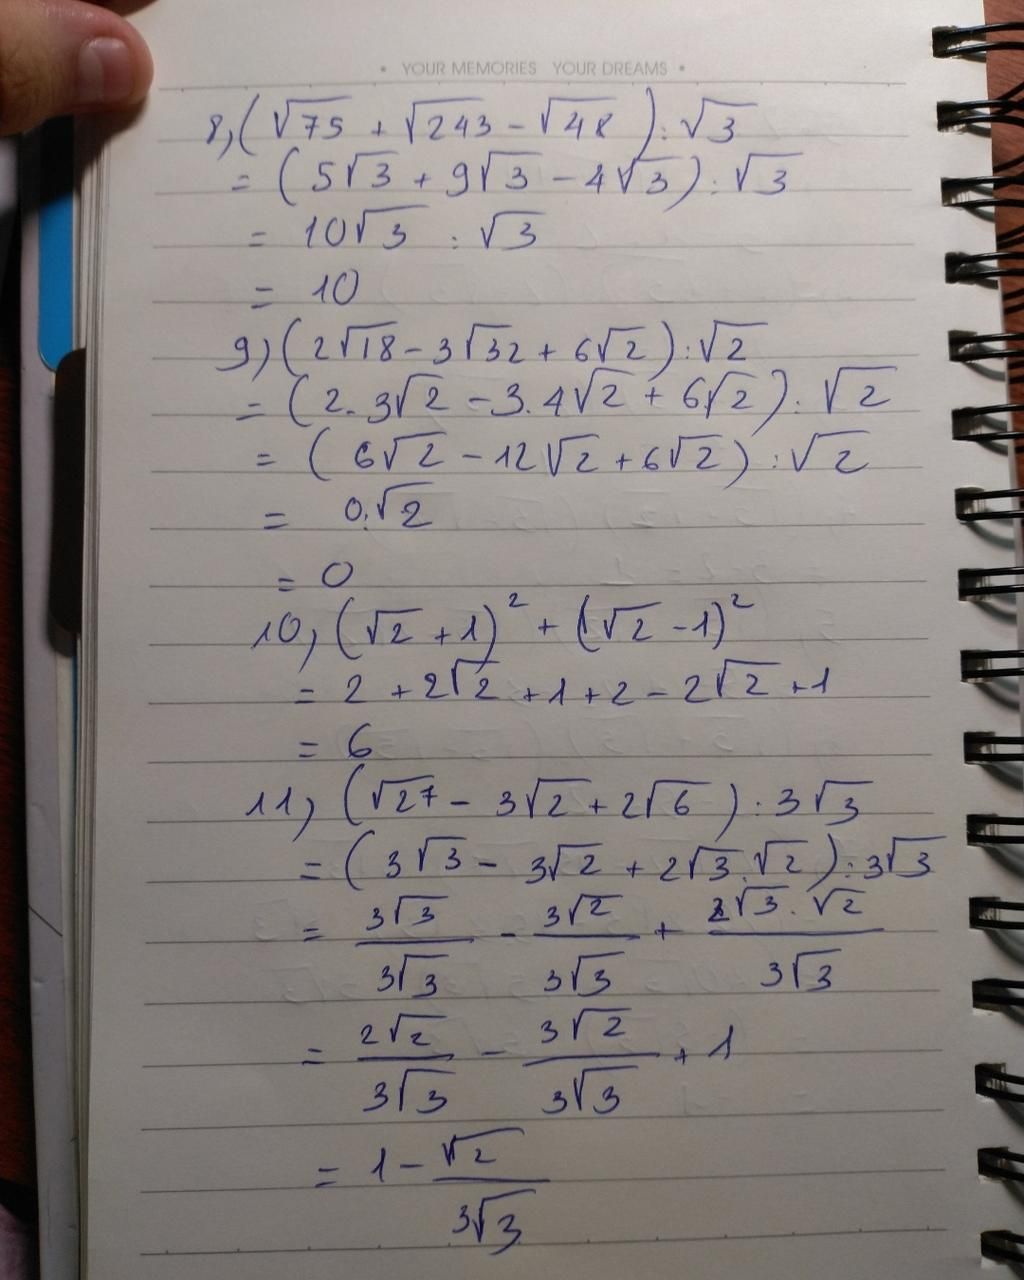 • YOUR MEMORIES YOUR DREAMS •
8, (√75 + √243 - √48) : √3
= (5√3 + 9√3 - 4√3) : √3
= 10√3 : √3
= 10
9) (2√18 - 3√32 + 6√2) : √2
= (2.3√2 - 3.4√2 + 6√2) : √2
= (6√2 - 12√2 + 6√2) : √2
= 0:√2
= 0
10, (√2 + 1)² + (√2 - 1)²
= 2 + 2√2 + 1 + 2 - 2√2 + 1
= 6
11, (√27 - 3√2 + 2√6) : 3√3
= (3√3 - 3√2 + 2√3.√2) : 3√3
= 3√3/3√3 - 3√2/3√3 + 2√3.√2/3√3
= 2√2/3√3 - 3√2/3√3 + 1
= 1 - √2/3√3